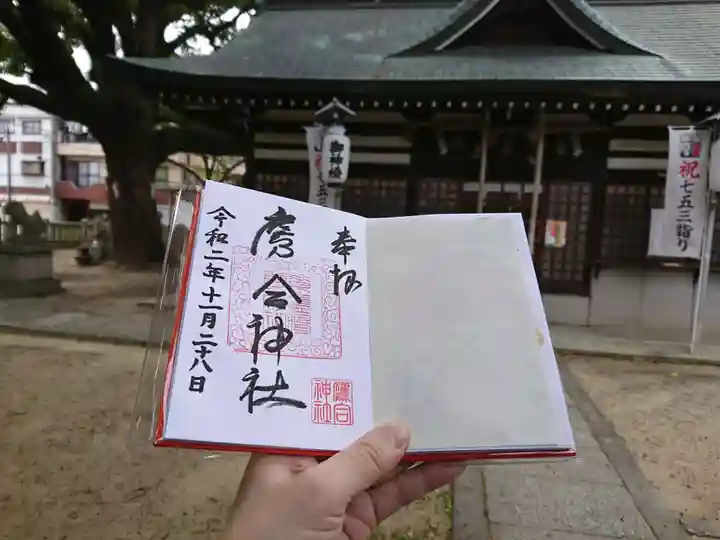 奉拝
鷹合神社
令和二年十一月二十八日
鷹合
神社
御神燈
七五三
祝七五三詣り